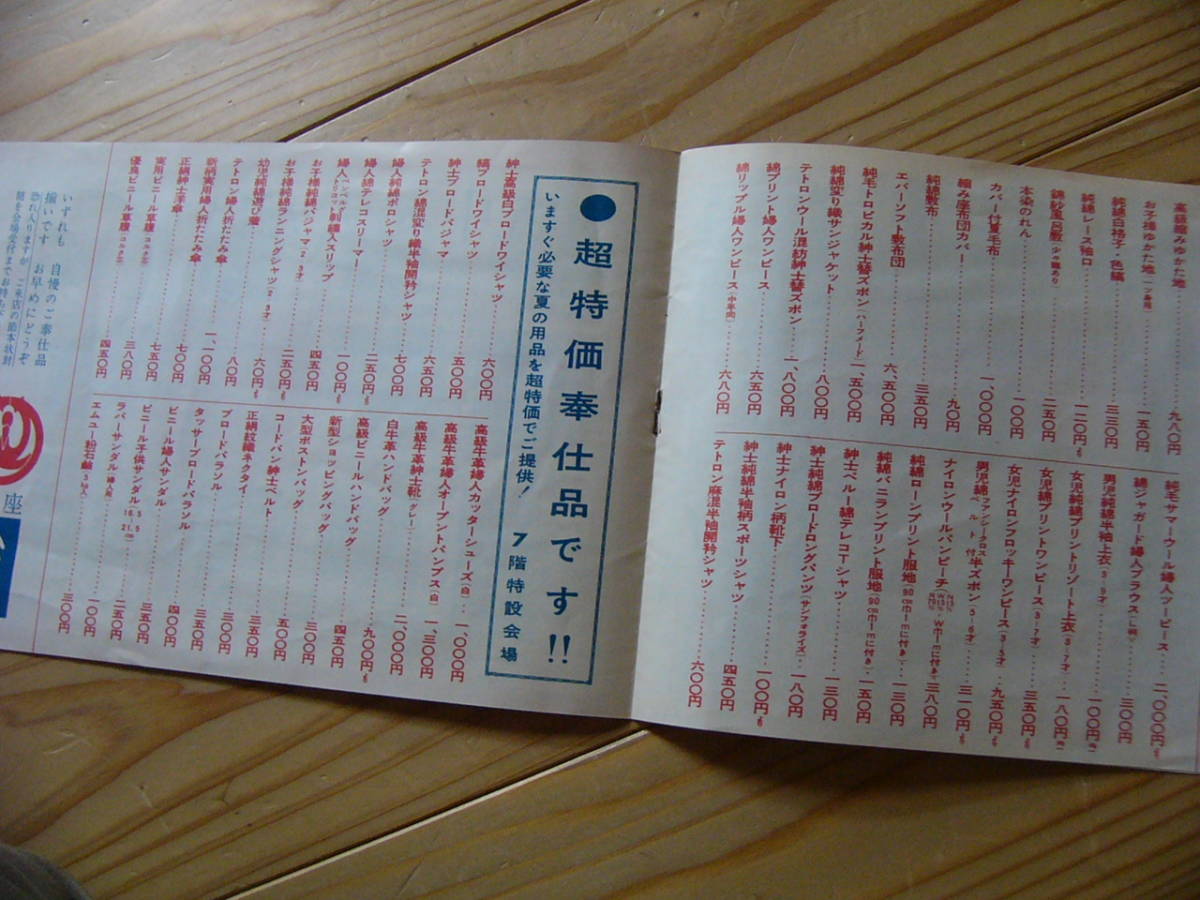 高級縮みゆかた地……九八〇円
お子様ゆかた地……一五〇円
純綿白格子・色縞……三三〇円
純綿レース袖口……一二〇円
綿紗風呂敷……二五〇円
本染のれん……一〇〇円
カバー付夏毛布……一、〇〇〇円
縮み座布団カバー……九〇円
純綿敷布……三五〇円
エバーソフト敷布団……六、五〇〇円
純毛トロピカル紳士替ズボン(ハーフメード)……一、五〇〇円
純綿変り織サンジャケット……八〇〇円
テトロンウール混紡紳士替ズボン……一、八〇〇円
綿プリント婦人ワンピース……六五〇円
綿リップル婦人ワンピース(中年向)……六八〇円
純毛サマーウール婦人ツーピース……二、〇〇〇円より
綿ジャガード婦人ブラウス……三〇〇円
男児純綿半袖上衣……一〇〇円
女児純綿プリントリゾート上衣……一八〇円
女児綿プリントワンピース……三五〇円より
女児ナイロンフロッキーワンピース……九五〇円より
男児綿ファンシークロスベルト付半ズボン……三一〇円より
ナイロンウールバンピーチ……三八〇円
純綿ローンプリント服地(90cm巾一mに付き)……一三〇円
純綿バニランプリント服地(90cm巾一mに付き)……一五〇円
紳士ベルー綿テレコTシャツ……一三〇円
紳士純綿ブロードロングパンツ(サンフォライズ)……一八〇円
紳士ナイロン柄靴下……一〇〇円より
紳士純綿半袖柄スポーツシャツ……四五〇円
テトロン麻混半袖開衿シャツ……六〇〇円
●超特価奉仕品です!!
いますぐ必要な夏の用品を超特価でご提供!
7階特設会場
紳士高級白ブロードワイシャツ……六〇〇円
縞ブロードワイシャツ……五〇〇円
紳士ブロードパジャマ……六五〇円
テトロン綿混変り織半袖開衿シャツ……七〇〇円
婦人純綿ポロシャツ……二五〇円より
婦人綿テレコスリーマー……一〇〇円
婦人刺繍入スリップ……四五〇円
お子様純綿パジャマ2・3才……二五〇円
お子様純綿ランニングシャツ(2・3才)……六〇円より
幼児純綿遊び着……八〇円
テトロン婦人折たたみ傘……一、一〇〇円
新柄実用婦人折たたみ傘……七〇〇円
正絹紳士洋傘……七五〇円
実用ビニール草履……三八〇円
優良ビニール草履……四五〇円
高級牛革婦人カッターシューズ(白)……一、〇〇〇円
高級牛革婦人オープントパンプス(白)……一、三〇〇円
高級牛革紳士靴(グレー)……二、〇〇〇円
白牛革ハンドバッグ……九〇〇円より
高級ビニールハンドバッグ……四五〇円
新型ショッピングバッグ……三五〇円
大型ボストンバッグ……三〇〇円
コードバン紳士ベルト……五〇〇円
正絹紋織ネクタイ……三五〇円
ブロードパラソル……四五〇円
タッサーブロードパラソル……五〇〇円
ビニール婦人サンダル……四〇〇円
ビニール子供サンダル(16.5〜21.5cm)……三五〇円
ラバーサンダル(婦人用)……一〇〇円
エムユー粒石鹸(3袋入)……三〇〇円
いずれも 自慢のご奉仕品
揃いです お早めにどうぞ
恐れ入りますが ご来店の節本状封
座